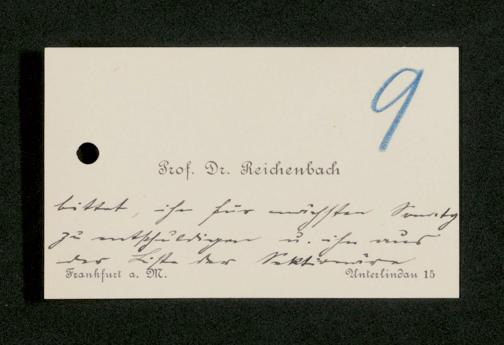 9
Prof. Dr. Reichenbach
bittet, ihn für nächsten Sonntag
zu entschuldigen u. ihn aus
der Liste der Sektionäre
Frankfurt a. M. Unterlindau 15